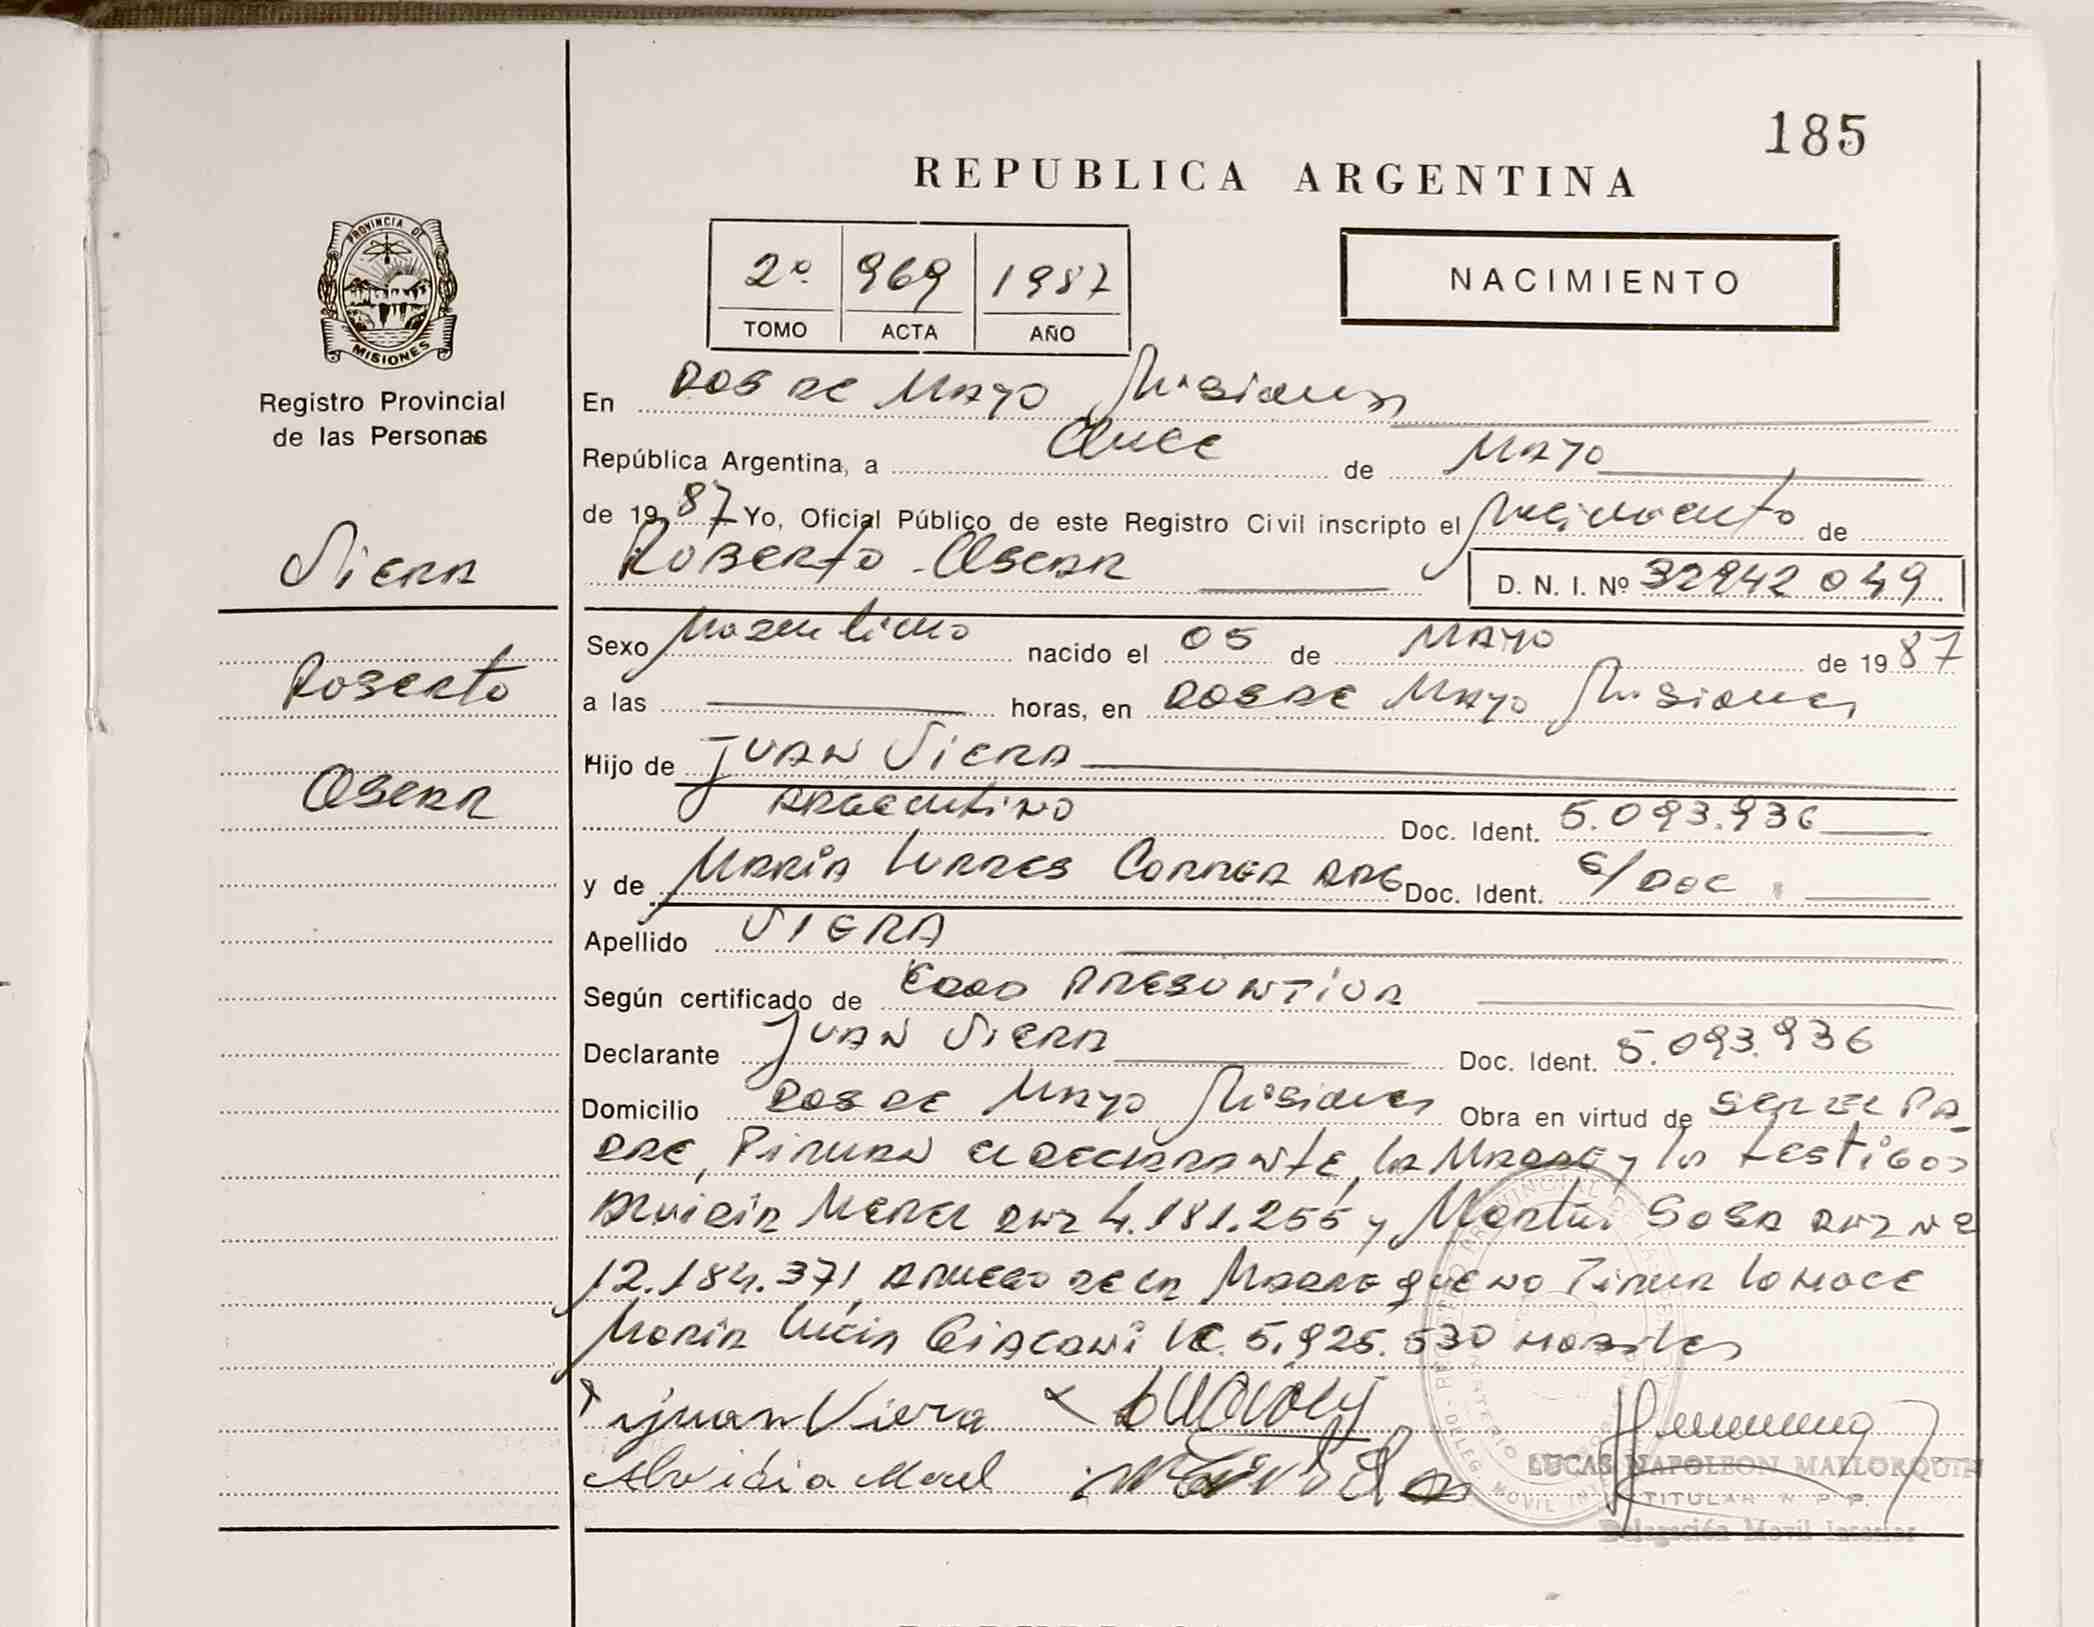 185
REPUBLICA ARGENTINA
PROVINCIA DE
MISIONES
Registro Provincial
de las Personas
2º 969 1987
TOMO ACTA AÑO
NACIMIENTO
En DOS DE MAYO Misiones
República Argentina, a Once de MAYO
de 19 87 Yo, Oficial Público de este Registro Civil inscripto el Nacimiento de
ROBERTO OSCAR D. N. I. Nº 32942049
VIERA
ROBERTO
OSCAR
Sexo Masculino nacido el 05 de MAYO de 19 87
a las horas, en DOS DE MAYO Misiones
Hijo de JUAN VIERA
ARGENTINO Doc. Ident. 5.093.936
y de MARÍA CORREA ARG Doc. Ident. S/DOC
Apellido VIERA
Según certificado de EDAD PRESUNTIVA
Declarante JUAN VIERA Doc. Ident. 5.093.936
Domicilio DOS DE MAYO Misiones Obra en virtud de SER EL PA
DRE, FIRMAN EL DECLARANTE, la MADRE y los testigos
MEREL DNI 4.181.255 y Martín SOSA DNI Nº
12.184.371, A RUEGO DE LA MADRE que NO FIRMA lo HACE
MARÍA LUCÍA GIACOMI LC. 5.925.530 HABILES
juan Viera
Alvidia Merel
LUCAS NAPOLEON MALLORQUIN
TITULAR R P P.
Delegación Movil Interior